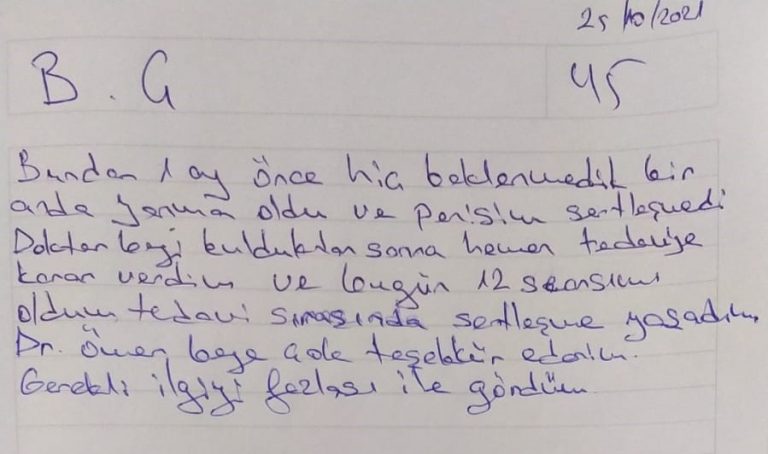 25/10/2021
B. G
45
Bundan 1 ay önce hiç beklenmedik bir
anda yanma oldu ve penisim sertleşmedi
Doktor beyi bulduktan sonra hemen tedaviye
karar verdim ve bugün 12 seansımı
oldum tedavi sırasında sertleşme yaşadım,
Dr. Ömer beye çok teşekkür ederim.
Gerekli ilgiyi fazlası ile gördüm